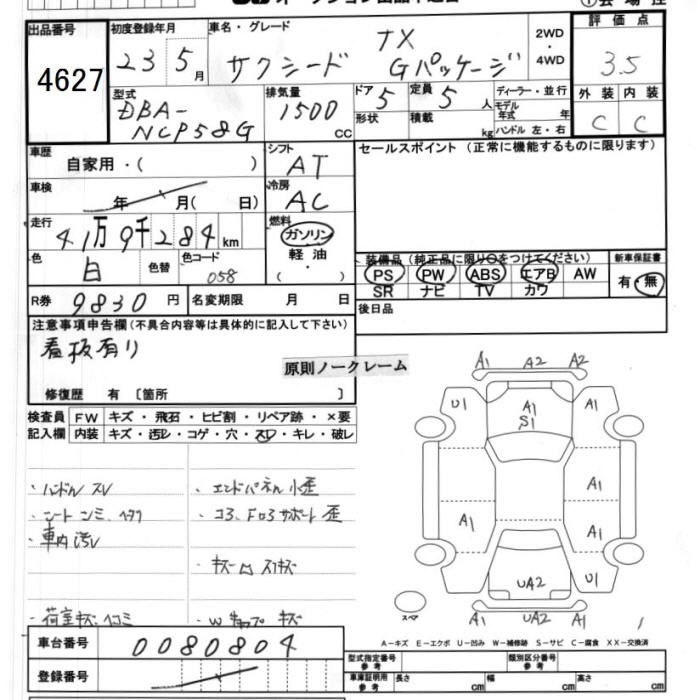 出品番号
4627
初度登録年月
23 5月
車名・グレード
TX
サクシード Gパッケージ
2WD
・
4WD
評価点
3.5
外装 内装
C C
型式
DBA-
NCP58G
排気量
1500
CC
ドア 5
形状
定員 5 人
積載 kg
ディーラー・並行
モデル
年式 年
ハンドル 左・右
車歴 自家用・( )
シフト AT
車検 年 月( 日)
冷房 AC
走行 41万9千284km
燃料 ガソリン
軽油
・
( )
色 白 色替
色コード 058
R券 9830円
名変期限 月 日
セールスポイント(正常に機能するものに限ります)
装備品(純正品に限り○をつけてください)
PS PW ABS エアB AW
SR ナビ TV カワ
新車保証書
有・無
後日品
注意事項申告欄(不具合内容等は具体的に記入して下さい)
看板有り
修復歴 有 〔箇所 〕
原則ノークレーム
検査員 FW キズ・飛石・ヒビ割・リペア跡・×要
記入欄 内装 キズ・汚レ・コゲ・穴・スレ・キレ・破レ
・ハンドルスレ
・車内汚レ
・エンドパネル小歪
・コア、Fロアサポート歪
A1 A2 A2
U1 A1 S1 A1
A1
A1 A1
UA2 U1
A1 UA2 A1
スペア
A-キズ E-エクボ U-凹み W-補修跡 S-サビ C-腐食 XX-交換済
車台番号 0080804
登録番号
型式指定番号
参考
類別区分番号
参考
車庫証明用
参考
長さ cm 幅 cm 高さ cm